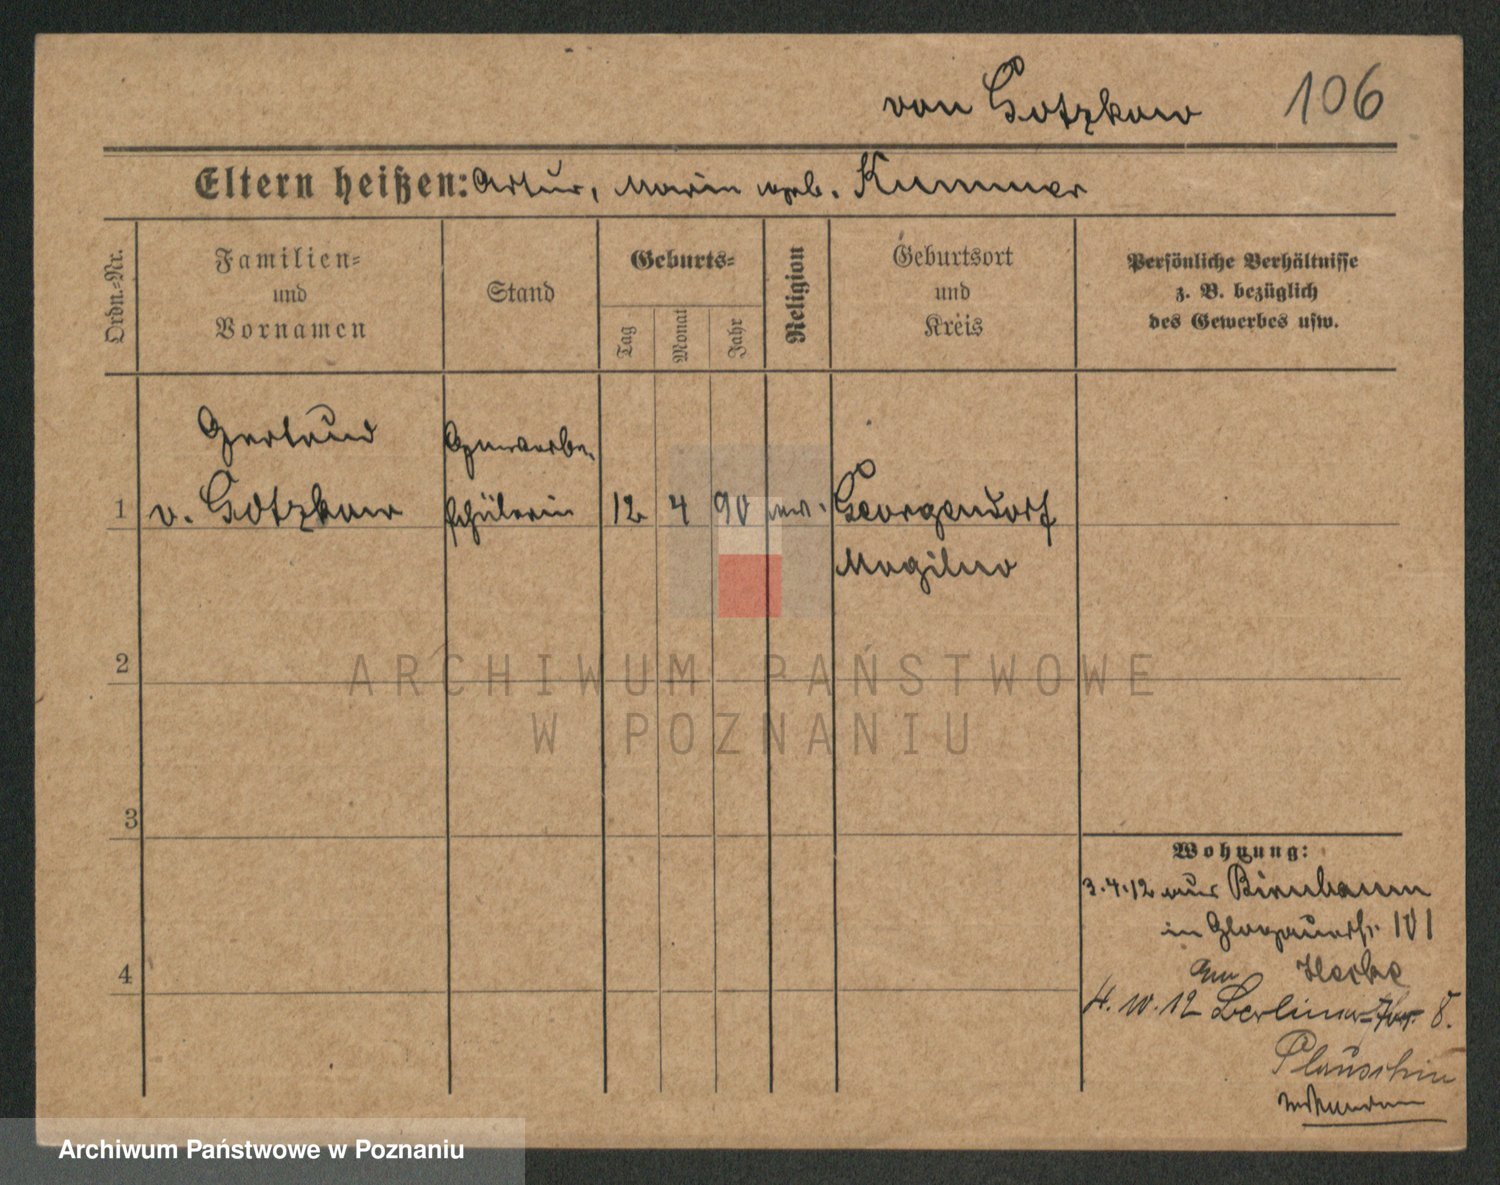 von Gotzkow 106
Eltern heißen: Artur, Marie geb. Kummer
Ordn.-Nr.
Familien-
und
Vornamen
Stand
Geburts-
Tag
Monat
Jahr
Religion
Geburtsort
und
Kreis
Persönliche Verhältnisse
z. B. bezüglich
des Gewerbes usw.
Gertrud Gewerbe-
1 v. Gotzkow schülerin 12 4 90 ev. Georgendorf
Mogilno
2
ARCHIWUM PAŃSTWOWE
W POZNANIU
3
Wohnung:
3.4.12 aus Birnbaum
in Glogauerstr. 101
bei
4. 10. 12 Berliner-Str. 8.
4
Archiwum Państwowe w Poznaniu